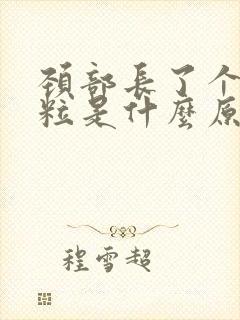 頸部長了个
粒是什麼原
程雪超